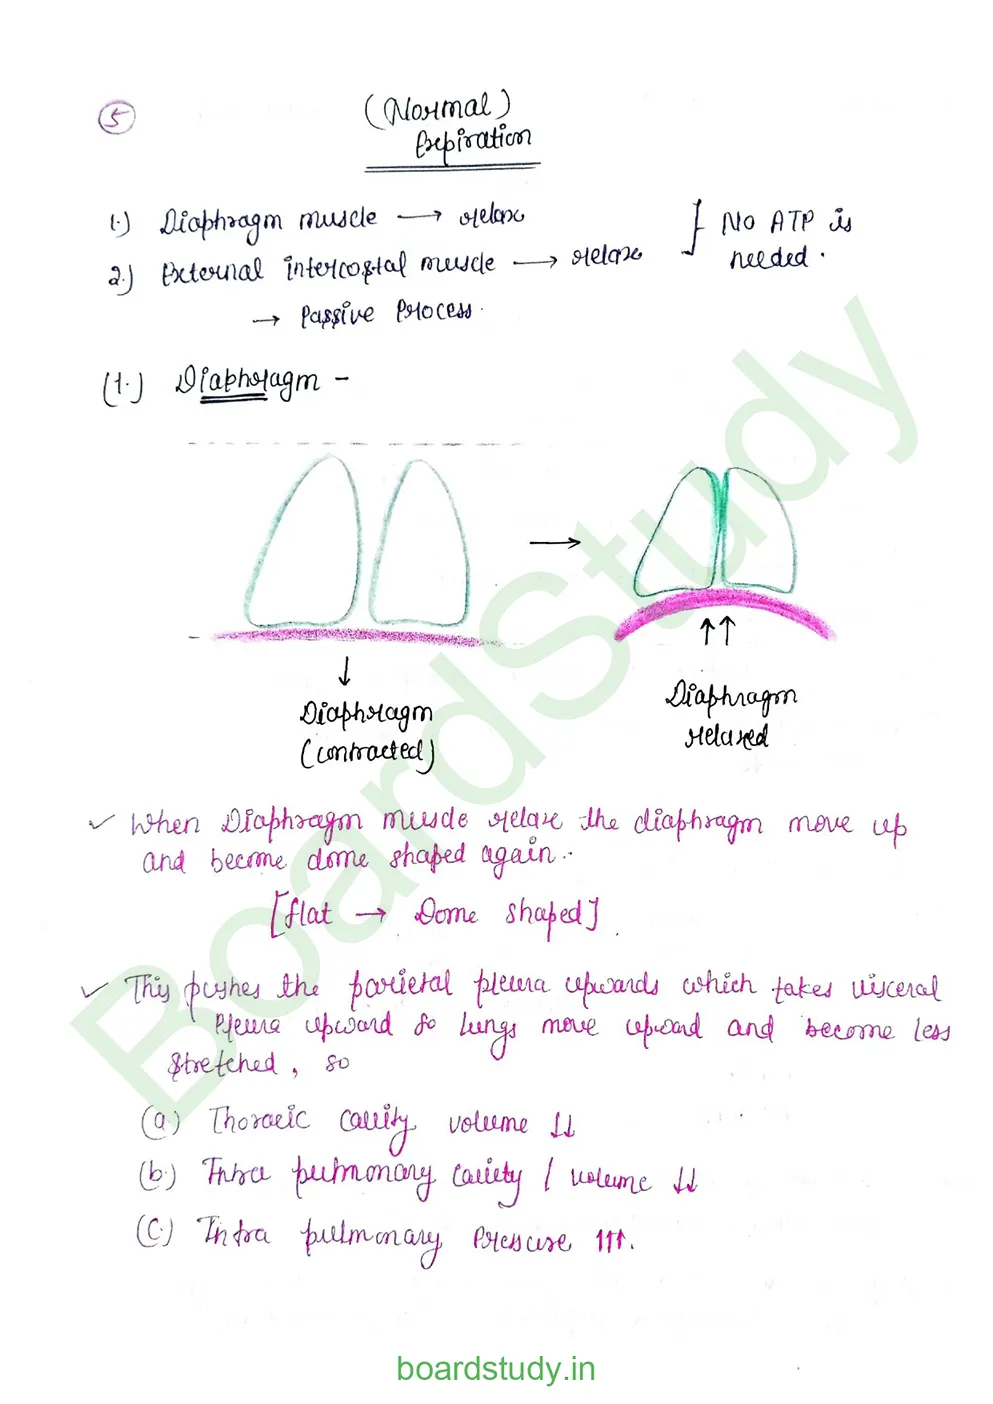 5
(Normal)
Expiration
1.) Diaphragm muscle → relax
2.) External intercostal muscle → relax
} No ATP is
needed.
→ Passive Process.
(1.) Diaphragm -
→
↓
Diaphragm
(contracted)
↑↑
Diaphragm
relaxed
✓ When Diaphragm muscle relax the diaphragm move up
and become dome shaped again.
[flat → Dome shaped]
✓ This pushes the parietal pleura upwards which takes visceral
Pleura upward so lungs move upward and become less
stretched, so
(a.) Thoracic cavity volume ↓↓
(b.) Intra pulmonary cavity / volume ↓↓
(C.) Intra pulmonary Pressure ↑↑↑.
BoardStudy
boardstudy.in